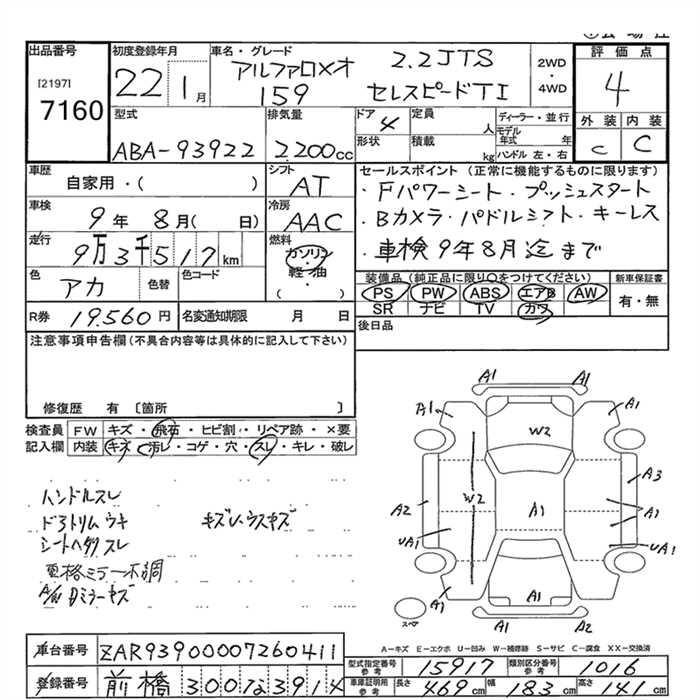 出品番号
[2197]
7160
初度登録年月
22 1 月
車名・グレード
アルファロメオ 2.2JTS
159 セレスピードTI
2WD
・
4WD
評価点
4
外装 内装
C C
型式
ABA-93922
排気量
2.200cc
ドア 4
定員 人
形状
積載 kg
ディーラー・並行
モデル年式 年
ハンドル 左・右
車歴
自家用・( )
シフト
AT
車検
9 年 8 月( 日)
冷房
AAC
走行
9万3千517 km
燃料
ガソリン
軽・油
( ・ )
色
アカ
色替
色コード
R券 19.560 円
名変通知期限 月 日
セールスポイント (正常に機能するものに限ります)
・Fパワーシート・プッシュスタート
・Bカメラ・パドルシフト・キーレス
・車検9年8月迄まで
装備品(純正品に限り○をつけてください)
PS PW ABS エアB AW
SR ナビ TV カワ
新車保証書
有・無
後日品
注意事項申告欄(不具合内容等は具体的に記入して下さい)
修復歴 有 〔箇所 〕
検査員
記入欄
FW キズ・飛石・ヒビ割・リペア跡・×要
内装 キズ・汚レ・コゲ・穴・スレ・キレ・破レ
ハンドルスレ
ドアトリムウキ キズ
シートヘタリスレ
ミラー不調
ミラーキズ
A1
A1
A1
W2
A3
A2
W2
A1
A1
UA1
UA1
A1
A1
A1
スペア
A1 A2
A=キズ E=エクボ U=凹み W=補修跡 S=サビ C=腐食 XX=交換済
車台番号 ZAR93900007260411
登録番号 前橋 300 123914
型式指定番号 参考 15917
類別区分番号 参考 1016
車庫証明用 参考 長さ 469 cm 幅 183 cm 高さ 141 cm